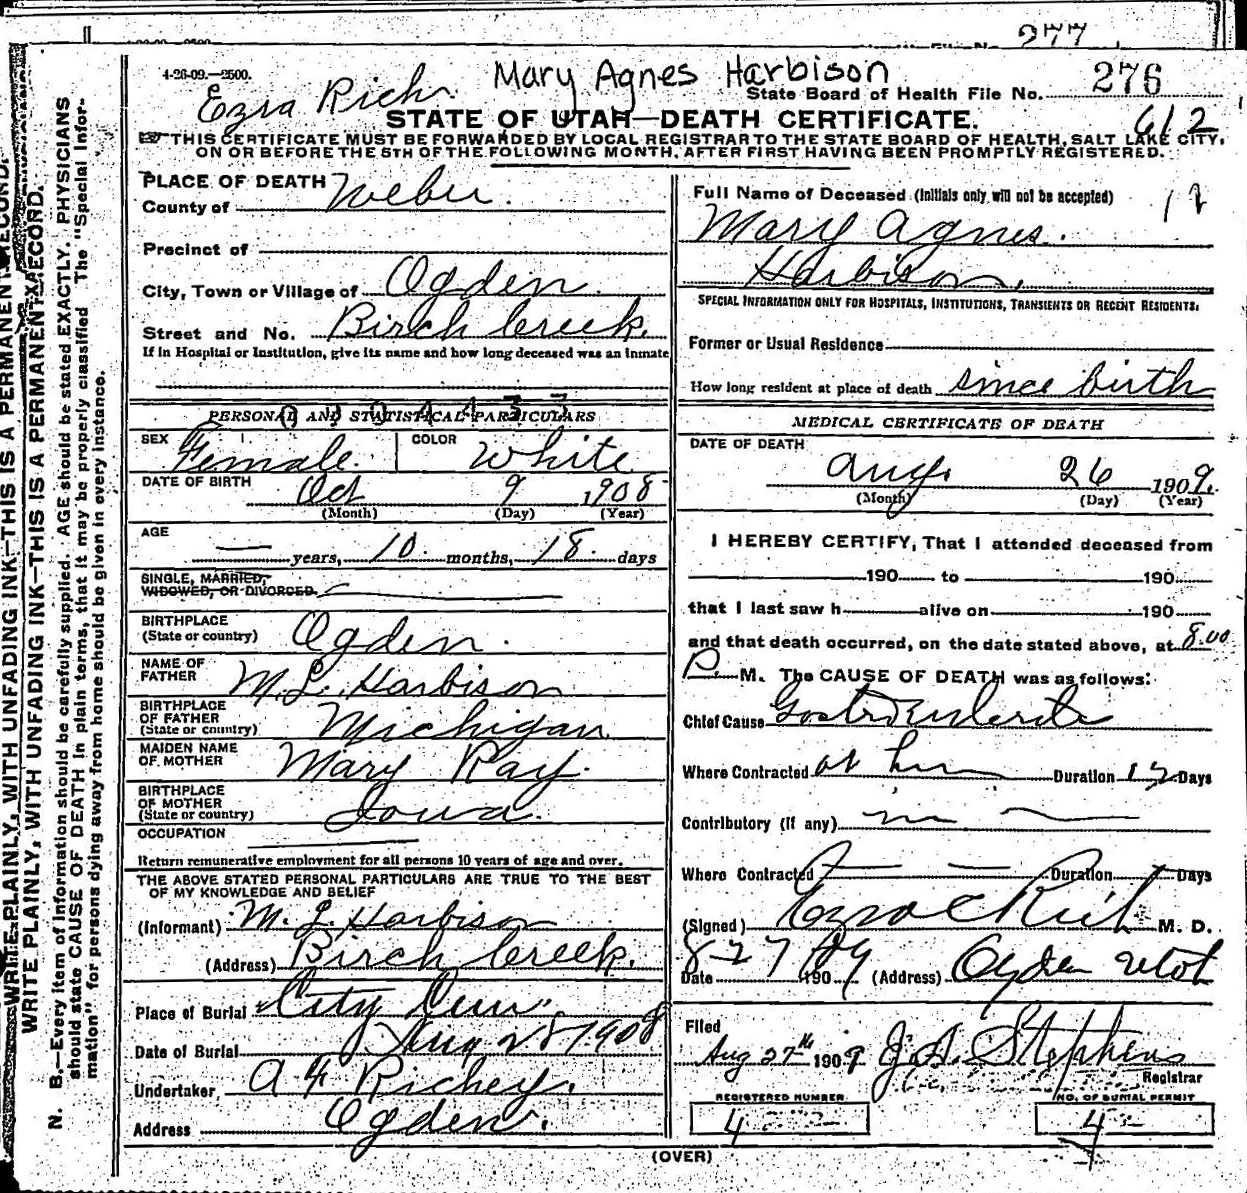 277
4-26-09.—2500.
Mary Agnes Harbison
Ezra Rich
State Board of Health File No. 276
STATE OF UTAH—DEATH CERTIFICATE.
612
THIS CERTIFICATE MUST BE FORWARDED BY LOCAL REGISTRAR TO THE STATE BOARD OF HEALTH, SALT LAKE CITY,
ON OR BEFORE THE 5TH OF THE FOLLOWING MONTH, AFTER FIRST HAVING BEEN PROMPTLY REGISTERED.
WRITE PLAINLY, WITH UNFADING INK—THIS IS A PERMANENT RECORD.
WRITE PLAINLY, WITH UNFADING INK—THIS IS A PERMANENT RECORD.
N. B.—Every item of information should be carefully supplied. AGE should be stated EXACTLY. PHYSICIANS
should state CAUSE OF DEATH in plain terms, that it may be properly classified. The "Special Infor-
mation" for persons dying away from home should be given in every instance.
PLACE OF DEATH
County of Weber
Precinct of
City, Town or Village of Ogden
Street and No. Birch Creek.
If in Hospital or Institution, give its name and how long deceased was an inmate
PERSONAL AND STATISTICAL PARTICULARS
SEX Female. COLOR White
DATE OF BIRTH Oct 9 1908
(Month) (Day) (Year)
AGE — years, 10 months, 18 days
SINGLE, MARRIED,
WIDOWED, OR DIVORCED.
BIRTHPLACE
(State or country) Ogden.
NAME OF
FATHER M. L. Harbison
BIRTHPLACE
OF FATHER
(State or country) Michigan
MAIDEN NAME
OF MOTHER Mary Ray.
BIRTHPLACE
OF MOTHER
(State or country) Iowa.
OCCUPATION
Return remunerative employment for all persons 10 years of age and over.
THE ABOVE STATED PERSONAL PARTICULARS ARE TRUE TO THE BEST
OF MY KNOWLEDGE AND BELIEF
(Informant) M. L. Harbison
(Address) Birch Creek.
Place of Burial City Cem.
Date of Burial Aug 28 1908
Undertaker Richey.
Address Ogden.
Full Name of Deceased (Initials only will not be accepted)
Mary Agnes.
Harbison,
SPECIAL INFORMATION ONLY FOR HOSPITALS, INSTITUTIONS, TRANSIENTS OR RECENT RESIDENTS:
Former or Usual Residence
How long resident at place of death since birth
MEDICAL CERTIFICATE OF DEATH
DATE OF DEATH
Aug. 26 1909.
(Month) (Day) (Year)
I HEREBY CERTIFY, That I attended deceased from
190 to 190
that I last saw h alive on 190
and that death occurred, on the date stated above, at 8.00
P. M. The CAUSE OF DEATH was as follows:
Chief Cause Gastroenteritis
Where Contracted at Duration Days
Contributory (if any)
Where Contracted Duration Days
(Signed) Ezra C Rich M. D.
Date 8-27 1909 (Address) Ogden Utah
Filed
Aug 27th 1909 Stephens
Registrar
REGISTERED NUMBER
4
NO. OF BURIAL PERMIT
4
(OVER)